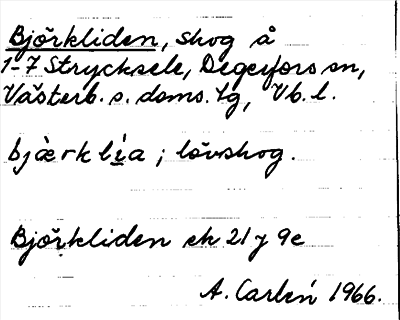 Björkliden, skog å
1-7 Strycksele, Degerfors sn,
Västerb. s. doms. tg, Vb. l.
bjærk lìa ; lövskog.
Björkliden ek 21 y 9e
A. Carlén 1966.